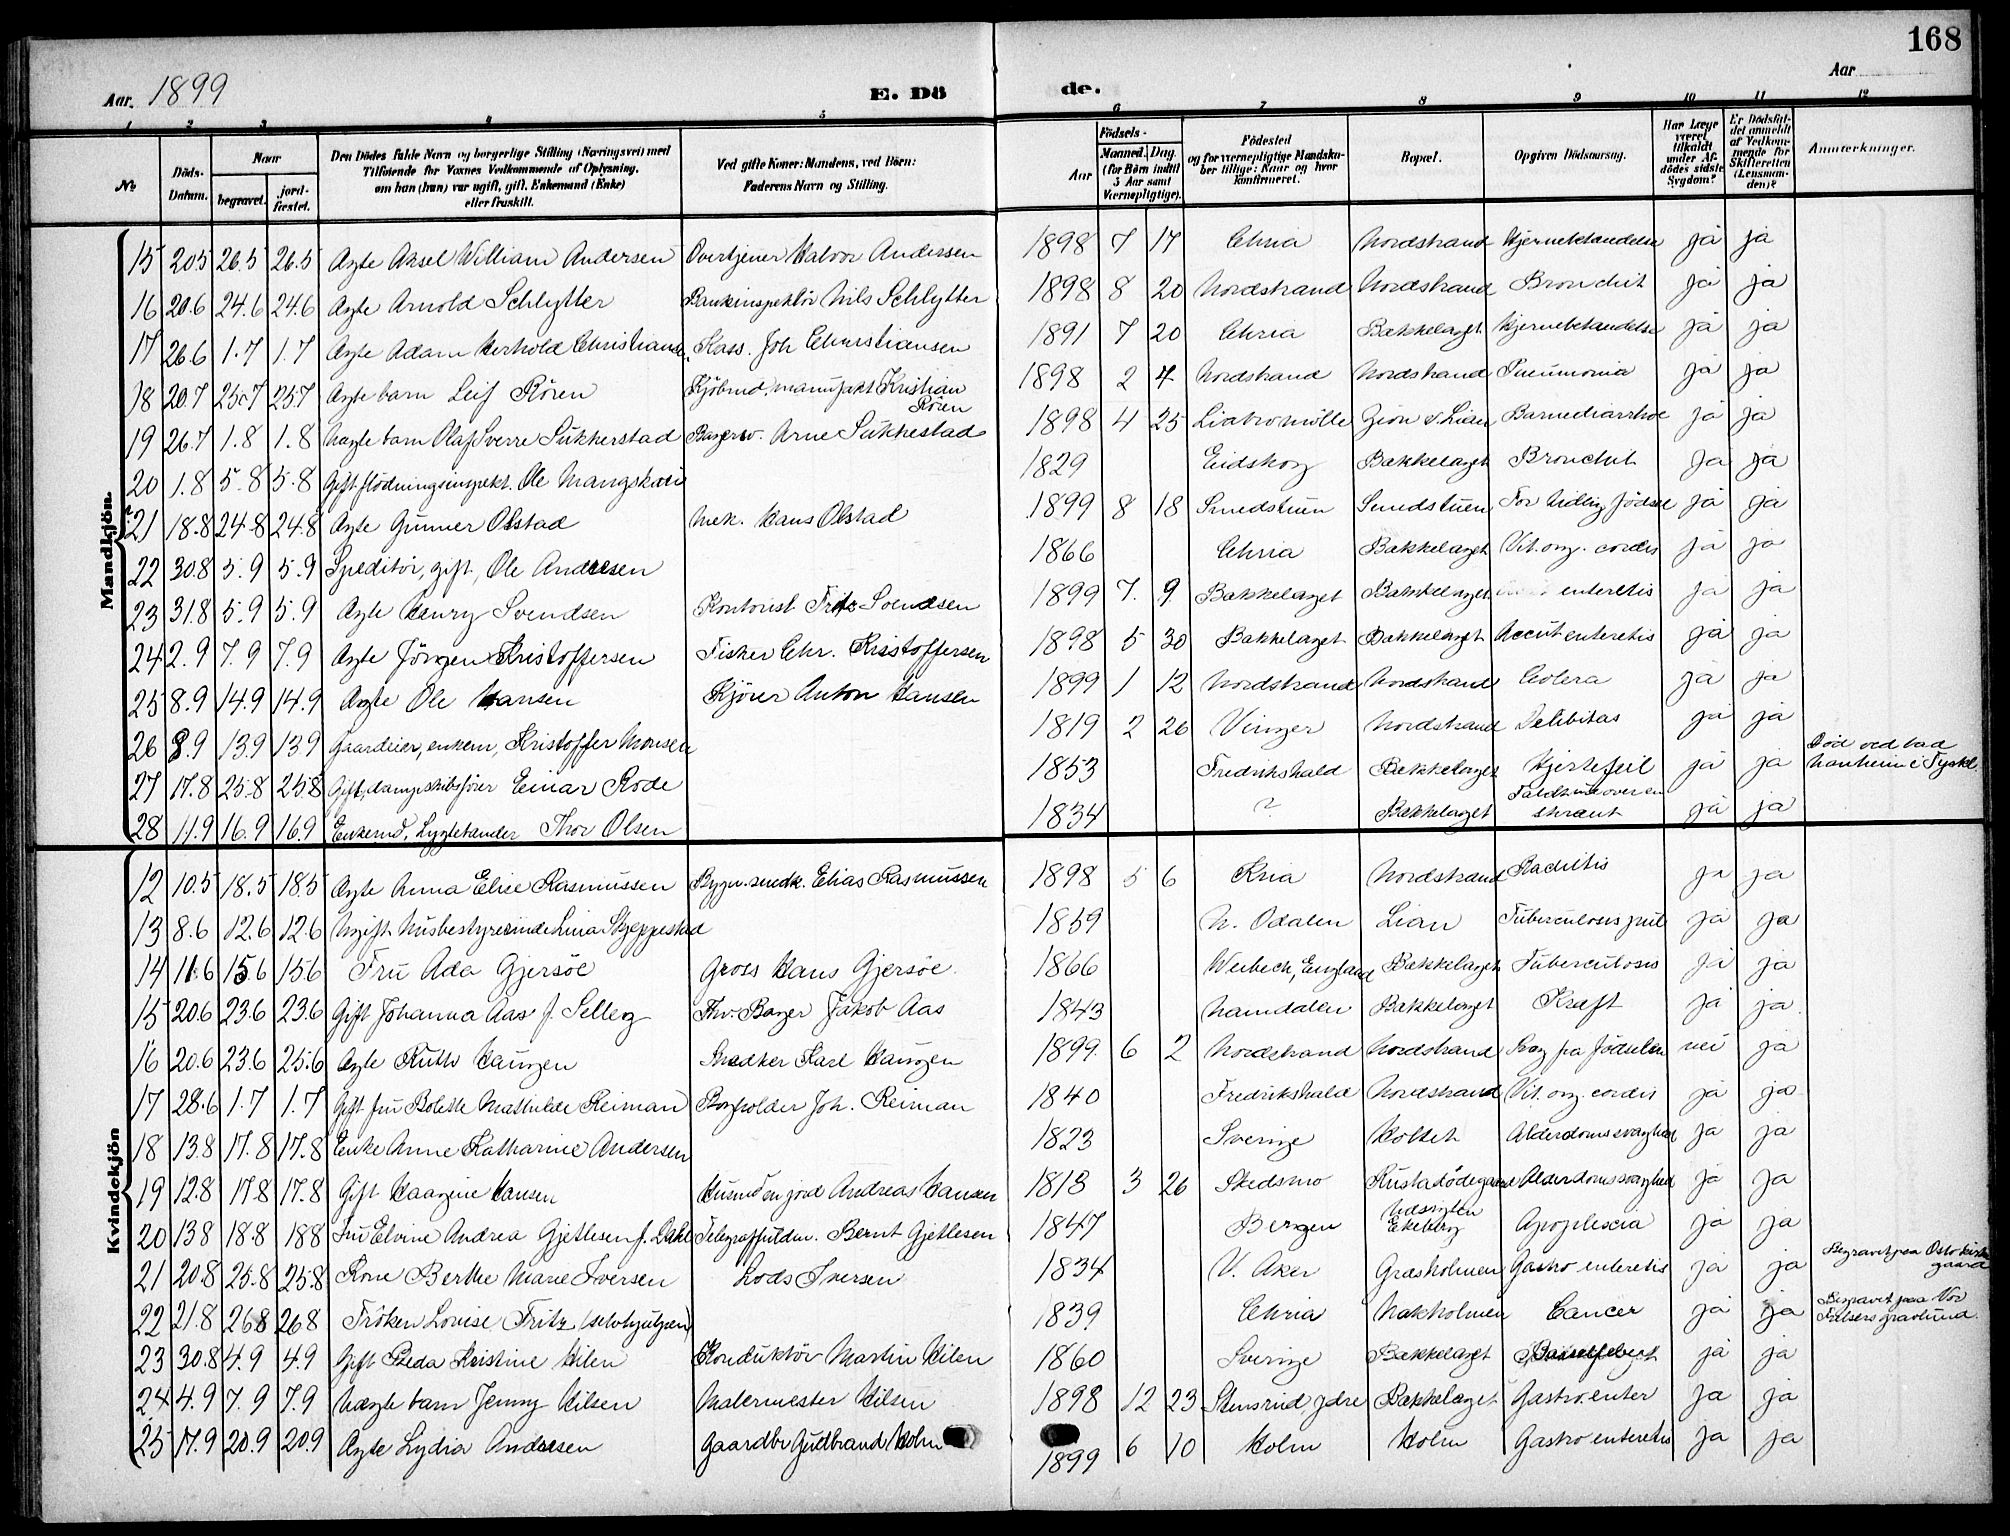 168
Aar. 1899
E. Dö
de.
Aar
1 2 3 4 5 6 7 8 9 10 11 12
No
Döds-Datum.
Naar
begravet.
jord-fæstet.
Den Dödes fulde Navn og borgerlige Stilling (Næringsvei) med
Tilföiende for Voxnes Vedkommende af Oplysning,
om han (hun) var ugift, gift, Enkemand (Enke)
eller fraskilt.
Ved gifte Koner: Mandens, ved Börn:
Faderens Navn og Stilling.
Födsels-
Aar
Maaned. Dag
(for Börn indtil
5 Aar samt
Værnepligtige).
Födested
og for værnepligtige Mandska-
ber tillige: Naar og hvor
konfirmeret.
Bopæl.
Opgiven Dödsaarsag.
Har Læge
været
tilkaldt
under Af-
dödes sidste
Sygdom?
Er Dödsfal-
det anmeldt
af Vedkom-
mende for
Skifteretten
(Lensman-
den)?
Anmærkninger.
Mandkjön.
15 20.5 26.5 26.5 Ægte Aksel William Andersen Overtjener Halvor Andersen 1898 7 17 Chria Nordstrand Hjernebetændelse ja ja
16 20.6 24.6 24.6 Ægte Arnold Schlytter Bankinspektör Nils Schlytter 1898 8 20 Nordstrand Nordstrand Bronchit ja ja
17 26.6 1.7 1.7 Ægte Adam Herhold Christiansen Kass. Joh Christiansen 1891 7 20 Chria Bækkelaget Hjernebetændelse ja ja
18 20.7 25.7 25.7 Ægte barn Leif Rören Kjöbmd. manufakt Kristian Rören 1898 2 4 Nordstrand Nordstrand Pneumonia ja ja
19 26.7 1.8 1.8 Uægte barn Olaf Sverre Sukkerstad Bagersv. Arne Sukkestad 1898 4 25 Liabromölle Zion v. Lian Barnediarrhoe ja ja
20 1.8 5.8 5.8 Gift flödningsinspekt. Ole Mangskau 1829 Eidskog Bækkelaget Bronchit ja ja
21 18.8 24.8 24.8 Ægte Gunner Olstad Mek. Hans Olstad 1899 8 18 Smedstuen Smedstuen For tidlig födsel ja ja
22 30.8 5.9 5.9 Speditör, gift, Ole Andresen 1866 Chria Bækkelaget Vit. org. cordis ja ja
23 31.8 5.9 5.9 Ægte Henry Svendsen Kontorist Fritz Svendsen 1899 7. 9. Bækkelaget Bækkelaget enteretis ja ja
24 2.9 7.9 7.9 Ægte Jörgen Kristoffersen Fisker Chr. Kristoffersen 1898 5 30 Bækkelaget Bækkelaget Accut enteretis ja ja
25 8.9 14.9 14.9 Ægte Ole Hansen Kjörer Anton Hansen 1899 1 12 Nordstrand Nordstrand Colera ja ja
26 8.9 13.9 13.9 Gaardeier, enkem, Kristoffer Monsen 1819 2 26 Vinger Nordstrand Debibitas ja ja
27 17.8 25.8 25.8 Gift, dampskibsförer Einar Rode 1853 Fredrikshald Bækkelaget Hjertefeil ja ja Död ved bad Nauheim i Tyskl.
28 11.9 16.9 16.9 Enkemd, Lygtetænder Thor Olsen 1834 ? Bækkelaget Faldt ud over en skrænt ja ja
Kvindekjön
12 10.5 18.5 18.5 Ægte Anna Elise Rasmussen Bygn. snedk. Elias Rasmussen 1898 5 6 Kria Nordstrand Rachitis ja ja
13 8.6 12.6 12.6 Ugift Husbestyrerinde Lina Skjeppestad 1859 N. Odalen Lian Tuberculosis pul ja ja
14 11.6 15.6 15.6 Fru Ada Gjersöe Gross Hans Gjersöe. 1866 Weibech, England Bækkelaget Tuberculosis ja ja
15 20.6 23.6 23.6 Gift Johanna Aas f. Selleg Thv. Bager Jakob Aas 1843 Namdalen Bækkelaget Kræft ja ja
16 20.6 23.6 25.6 Ægte Ruth Haugen Snedker Karl Haugen 1899. 6 2 Nordstrand Nordstrand Svag fra födselen nei ja
17 28.6 1.7 1.7 Gift fru Bolette Mathilde Reiman Bogholder Joh. Reiman 1840 Fredrikshald Nordstrand Vit. org. cordis ja ja
18 13.8 17.8 17.8 Enke Anne Katharine Andersen 1823 Sverige Holtet Alderdomssvaghed ja ja
19 12.8 17.8 17.8 Gift Haagine Hansen Husmd en jord Andreas Hansen 1813 3 26 Skedsmo Rustadödegaard Alderdomssvaghed ja ja
20 13.8 18.8 18.8 Fru Elvine Andrea Gjetlesen f. Dahl Telegraffuldm. Bernt Gjetlesen 1847 Bergen Udsigten Ekeberg Apoplexia ja ja
21 20.8 25.8 25.8 Kone Berthe Marie Iversen Lods Iversen 1834 V. Aker Græsholmen Gastro enteretis ja ja Begravet paa Oslo kirkegaard
22 21.8 26.8 26.8 Fröken Lovise Fritz (selvhjulpen) 1839 Chria Nakholmen Cancer ja ja Begravet paa Vor Frelsers gravlund.
23 30.8 4.9 4.9 Gift Beda Kristine Hilen Konduktör Martin Hilen 1860 Sverige Bækkelaget Barselfeber ja ja
24 4.9 7.9 7.9 Uægte barn Jenny Nilsen Malermester Nilsen 1898 12 23 Stensrud, Ydre Bækkelaget Gastro enter ja ja
25 17.9 20.9 20.9 Ægte Lydia Andresen Gaardbr Gudbrand Holm 1899 6 10 Holm Holm Gastro enteretis ja ja